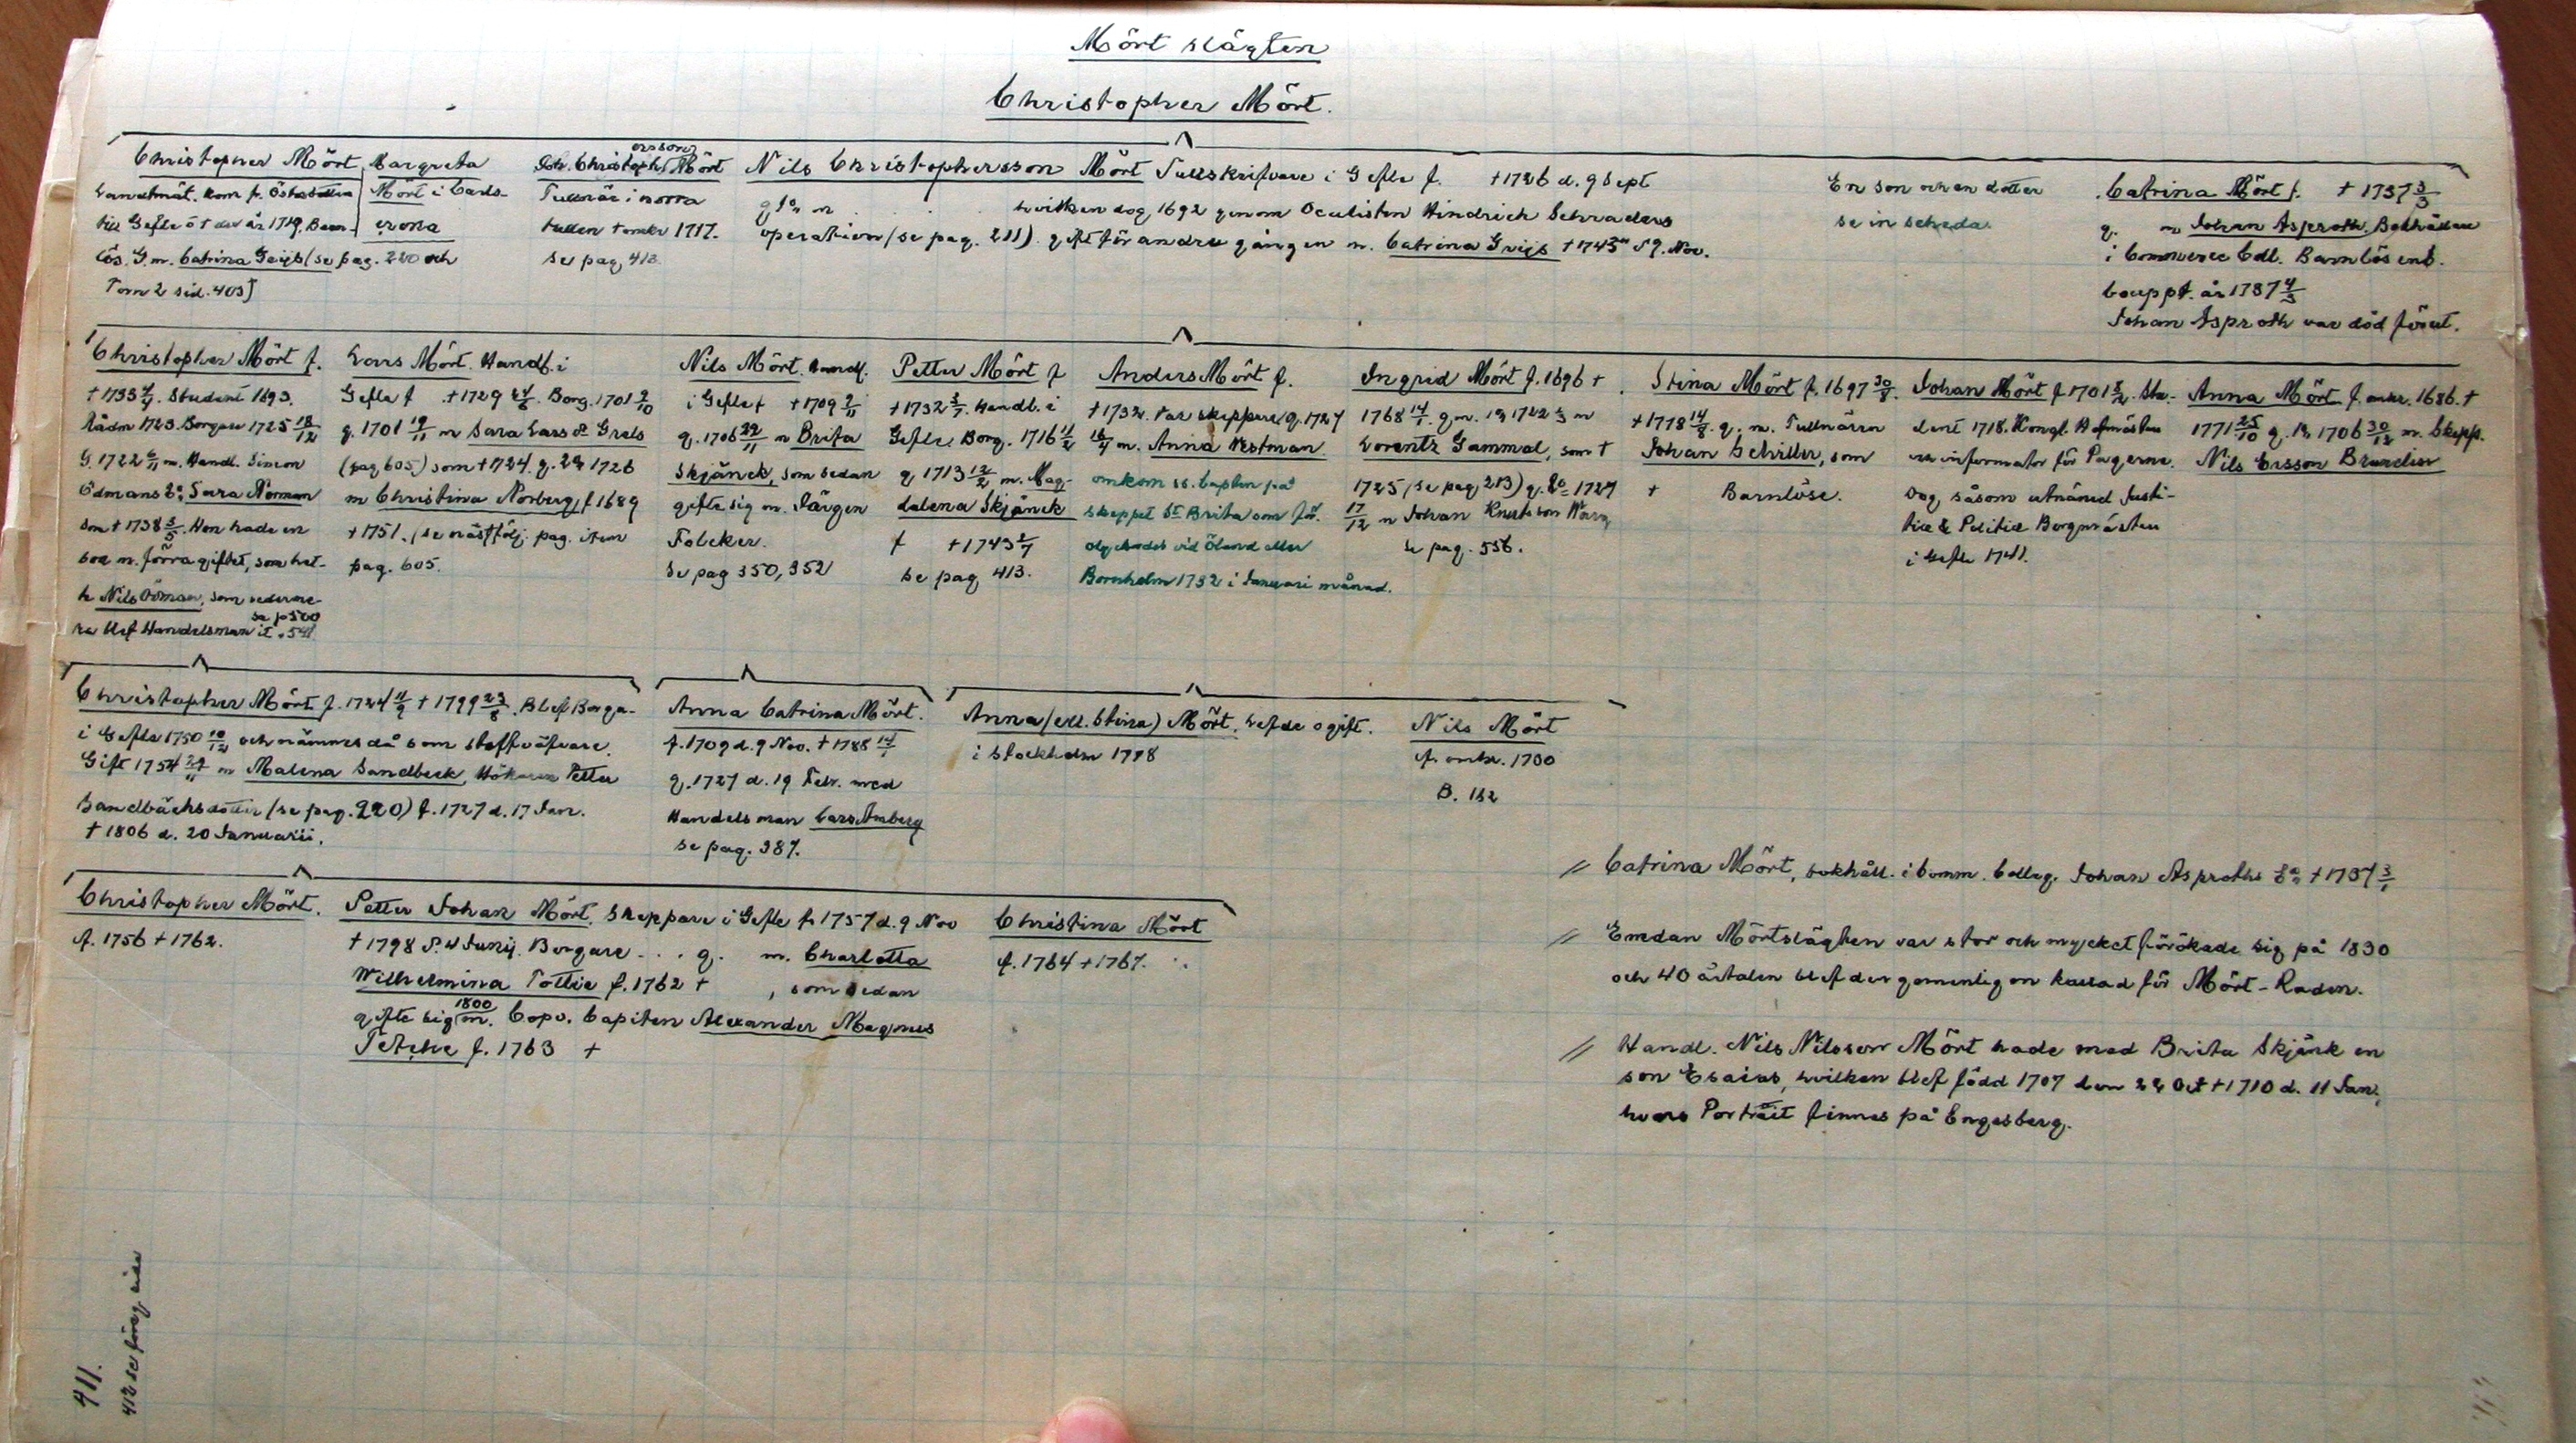 Mört slägten
Christopher Mört.
Christopher Mört
Landtmät. kom fr. Österbotten
till Gefle ö † där år 1719. Barn-
lös. G. m. Catrina Grijs (se pag. 220 och
Tom 2 sid. 403)
Margreta
Mört i Carls-
crona
Joh. Christophersson Mört
Tullnär i norra
tullen † omkr 1717.
se pag. 413
Nils Christophersson Mört Tullskrifvare i Gefle f. † 1726 d. 9 Sept
g. 1o m hvilken dog 1692 genom Oculisten Hindrich Schraders
operation (se pag. 211). gift för andra gången m. Catrina Grijs † 1743 d 9. Nov.
En son och en dotter
se in scheda.
Catrina Mört f. † 1737 3/3
g. m Johan Asproth, Bokhållare
i Commerce Coll. Barnlös enl.
Bouppt. år 1737 4/3
Johan Asproth var död förut.
Christopher Mört f.
† 1733 4/9. Student 1693.
Rådm 1723. Borgare 1725 18/12
G. 1722 6/11 m. Handl. Simon
Ödmans Ea: Sara Norman
som † 1738 3/5. Hon hade en
son m. förra giftet, som het-
te Nils Ödman, som sederme-
ra blef Handelsman se p 500
it. 541
Lars Mört. Handl. i
Gefle f. † 1729 24/6. Borg. 1701 9/10
g. 1701 19/11 m Sara Larsdr Grels
(pag 605) som † 1724. g. 2n 1726
m Christina Norberg, f 1689
† 1751. (se nästfölj. pag. item
pag. 605.
Nils Mört. Handl.
i Gefle f † 1709 2/11
g. 1706 22/11 m Brita
Skjänck, som sedan
gifte sig m. Jörgen
Folcker.
Se pag 350, 352
Petter Mört f
† 1732 3/7. Handl. i
Gefle. Borg. 1716 11/2
g 1713 12/2 m. Mag-
dalena Skjänck
f † 1743 2/7
se pag 413.
Anders Mört f.
† 1732. Var skeppare g. 1727
16/7 m. Anna Westman.
omkom ss. Capten på
skeppet St Brita som för-
olyckades vid Öland eller
Bornholm 1732 i Januari månad.
Ingrid Mört f. 1696 †
1768 14/1. g m. 1n 1722 2/3 m
Lorentz Gammal, som †
1725 (se pag 213) g. 2o 1727
17/12 m Johan Knutsson Warg
se pag. 556.
Stina Mört f. 1697 30/8.
† 1778 14/8. g. m. Tullnären
Johan Schiller, som
† Barnlöse.
Johan Mört f 1701 8/2. Stu-
dent 1718. Kongl. Hofmästa
re informator för Pagerne.
Dog såsom utnämd Justi-
tiæ & Politiæ Borgmästare
i Gefle 1741.
Anna Mört f. omkr. 1686. †
1771 25/10 g. 1n 1706 30/12 m. Skepp.
Nils Ersson Brundin
Christopher Mört f. 1724 11/9 † 1799 23/8. Blef Borga-
i Gefle 1750 10/12 och nämnes då som stoffväfvare.
Gift 1754 29/11 m Malena Sandbeck, Hökaren Petter
Sandbäcks dotter (se pag. 220) f. 1727 d. 17 Jan.
† 1806 d. 20 Januarii.
Anna Catrina Mört.
f. 1709 d. 9 Nov. † 1788 14/1
g. 1727 d. 19 Febr. med
Handelsman Lars Amberg
se pag. 387.
Anna (ell. Stina) Mört. lefde ogift.
i Stockholm 1778
Nils Mört
f. omkr. 1730
B. 182
Christopher Mört.
f. 1756 † 1762.
Petter Johan Mört. Skeppare i Gefle f. 1757 d. 9 Nov
† 1798 d. 4 Junij. Borgare . . . g. m. Charlotta
Wilhelmina Tottie f. 1762 † , som sedan
gifte sig 1800 m. Copv. Capiten Alexander Magnus
Tetche f. 1763 †
Christina Mört
f. 1764 † 1767.
// Catrina Mört, bokhåll. i Comm. Colleg. Johan Asproths Ea † 1737 3/3
// Emedan Mörtslägten var stor och mycket förökade sig på 1830
och 40 årtalen blef den gemenligen kallad för Mört-Raden.
// Handl. Nils Nilsson Mört hade med Brita Skjänk en
son Esaias, hvilken blef född 1707 den 22 Oct † 1710 d. 11 Jan,
hvars Porträit finnes på Engesberg.
411.
412 se föreg. sida